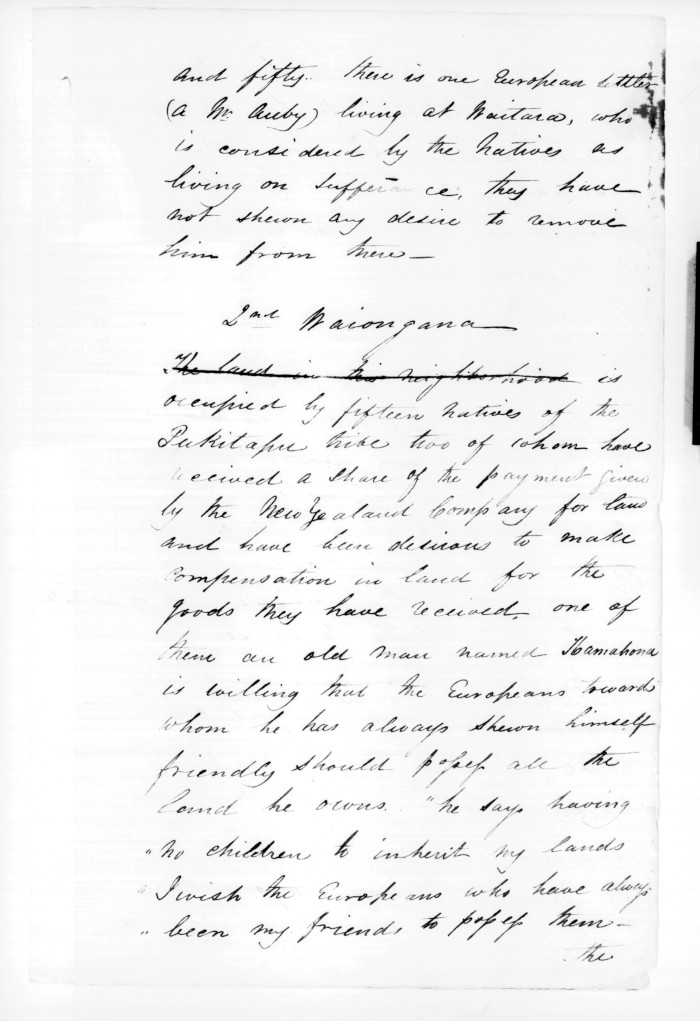 and fifty. there is one European settler
(a Mr. Auby) living at Waitara, who
is considered by the Natives as
living on sufferance, they have
not shewn any desire to remove
him from there —
2nd Waiongana
The land in this neighborhood is
occupied by fifteen Natives of the
Pukitapu tribe two of whom have
received a share of the payment given
by the New Zealand Company for land
and have been desirous to make
compensation in land for the
goods they have received, one of
them an old man named
is willing that the Europeans towards
whom he has always shewn himself
friendly should possess all the
land he owns. "he says having
" no children to inherit my lands
" I wish the Europeans who have always
" been my friends to possess them —
the